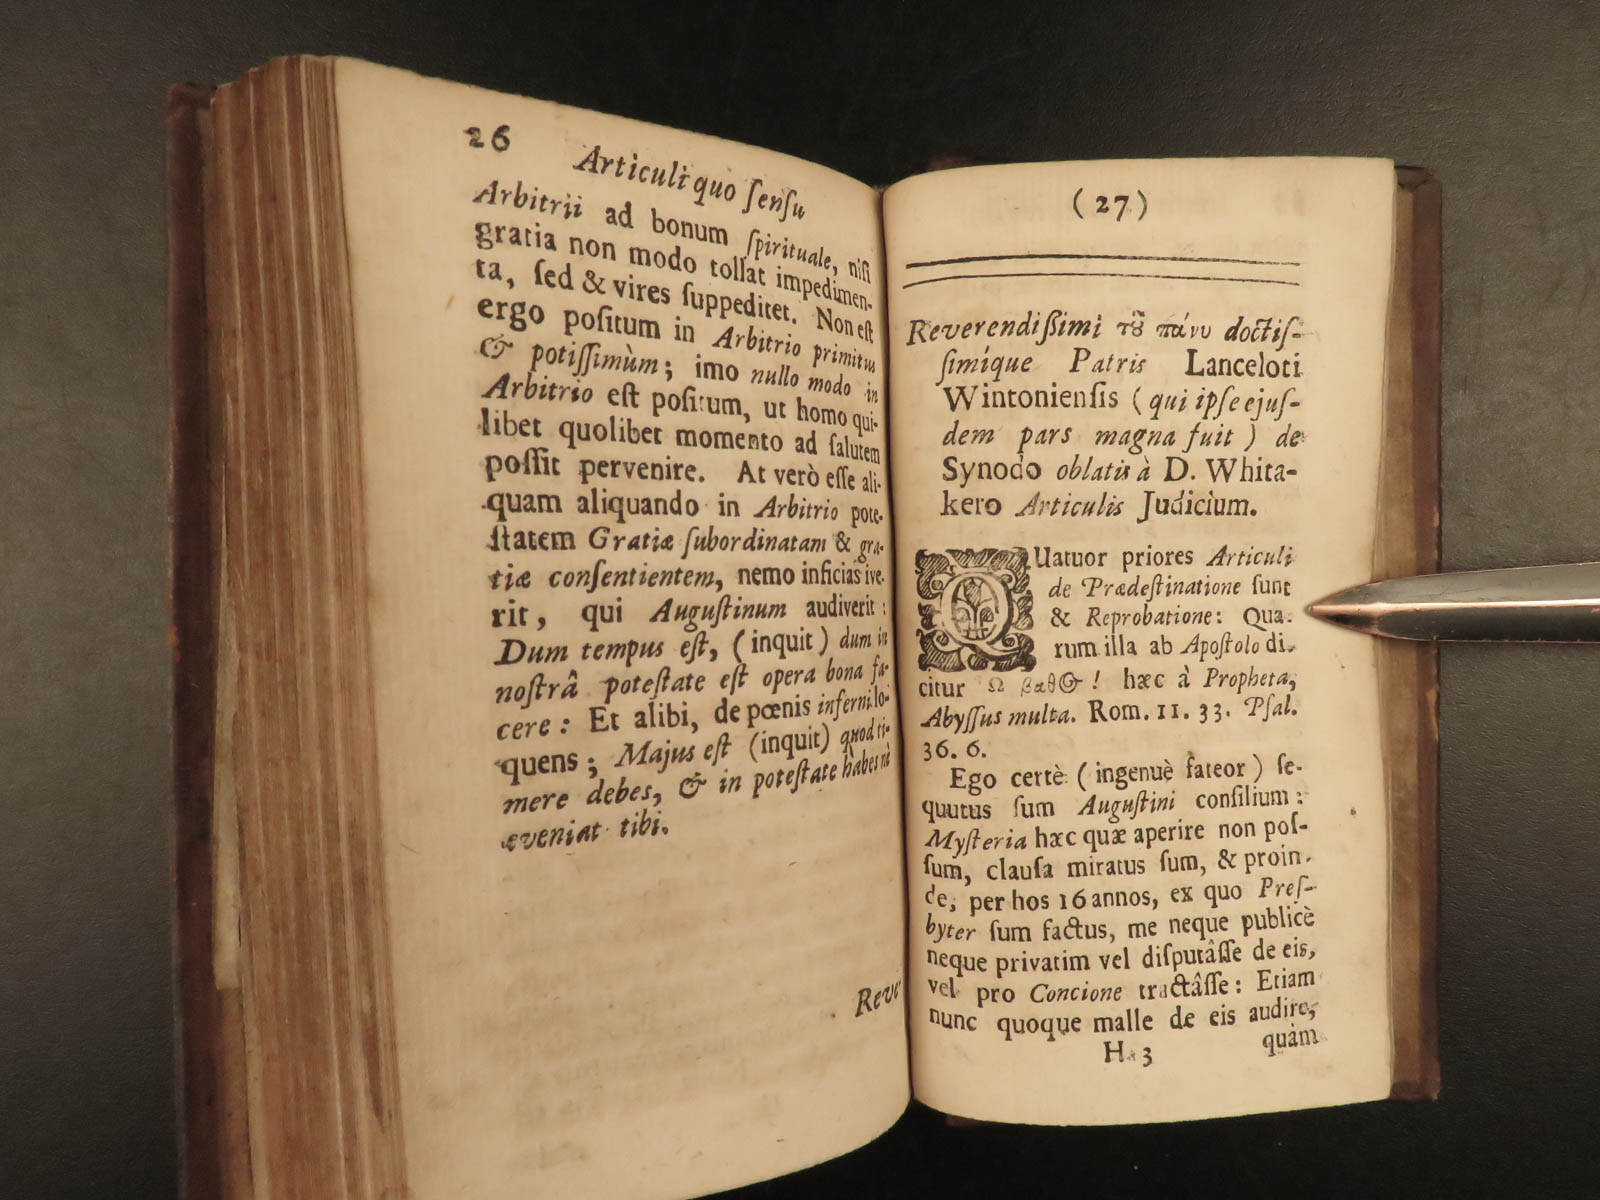 26
Articuli quo ſenſu
Arbitrii ad bonum ſpirituale, niſi
gratia non modo tollat impedimen-
ta, ſed & vires ſuppeditet. Non eſt
ergo poſitum in Arbitrio primitus
& potiſſimùm; imo nullo modo in
Arbitrio eſt poſitum, ut homo qui-
libet quolibet momento ad ſalutem
poſſit pervenire. At verò eſſe ali-
quam aliquando in Arbitrio pote-
ſtatem Gratiæ ſubordinatam & gra-
tiæ conſentientem, nemo inficias ive-
rit, qui Auguſtinum audiverit:
Dum tempus eſt, (inquit) dum in
noſtrâ poteſtate eſt opera bona fa-
cere: Et alibi, de pœnis inferni lo-
quens; Majus eſt (inquit) quod ti-
mere debes, & in poteſtate habes nè
eveniat tibi.
Reve-
(27)
Reverendißimi τȣ͂ πάνυ doctiſ-
ſimíque Patris Lanceloti
Wintonienſis (qui ipſe ejuſ-
dem pars magna fuit) de
Synodo oblatis à D. Whita-
kero Articulis Judicium.
QUatuor priores Articuli
de Prædeſtinatione ſunt
& Reprobatione: Qua-
rum illa ab Apoſtolo di-
citur Ω βαθ&! hæc à Propheta,
Abyſſus multa. Rom. 11. 33. Pſal.
36. 6.
Ego certè (ingenuè fateor) ſe-
quutus ſum Auguſtini conſilium:
Myſteria hæc quæ aperire non poſ-
ſum, clauſa miratus ſum, & proin-
de, per hos 16 annos, ex quo Preſ-
byter ſum factus, me neque publicè
neque privatim vel diſputâſſe de eis,
vel pro Concione tractâſſe: Etiam
nunc quoque malle de eis audire,
H 3
quàm